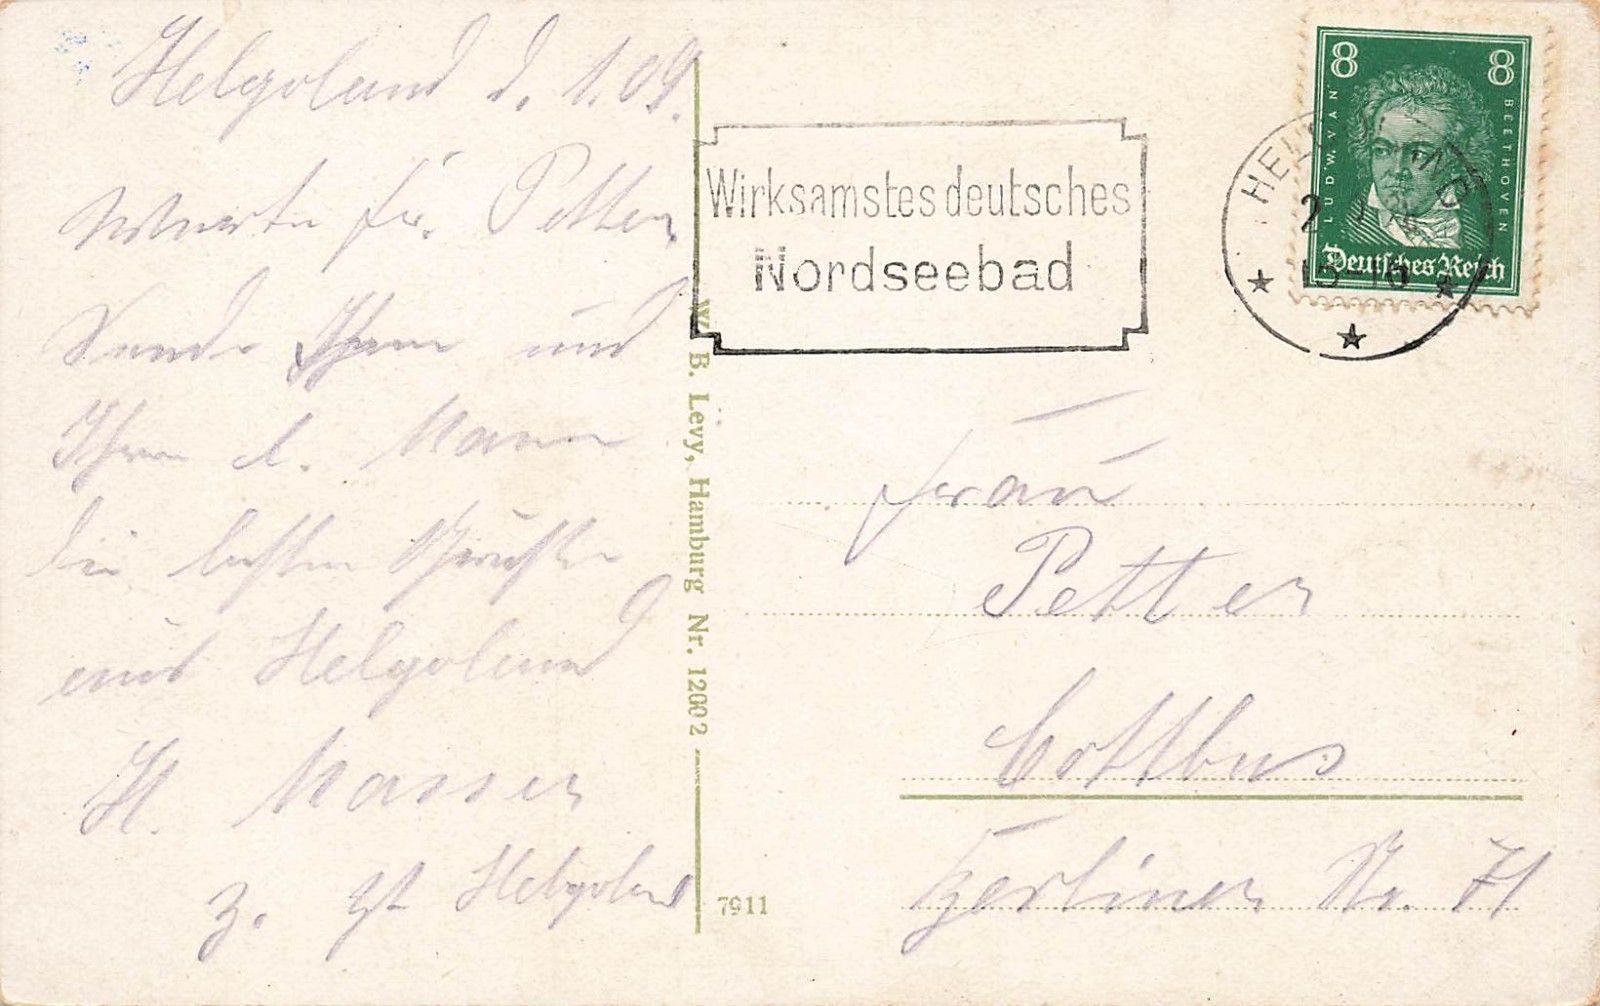 Helgoland d. 1.09.
Werte Fr. Petter
Sende Ihnen und
Ihrem l. Mann
die besten Grüße
aus Helgoland
H. Masser
z. Zt Helgoland
W. B. Levy, Hamburg Nr. 12002
7911
Wirksamstes deutsches
Nordseebad
HELGOLAND
15-16
8 8
LUDW. VAN BEETHOVEN
Deutsches Reich
Frau
Petter
Cottbus
Berliner Str. 71